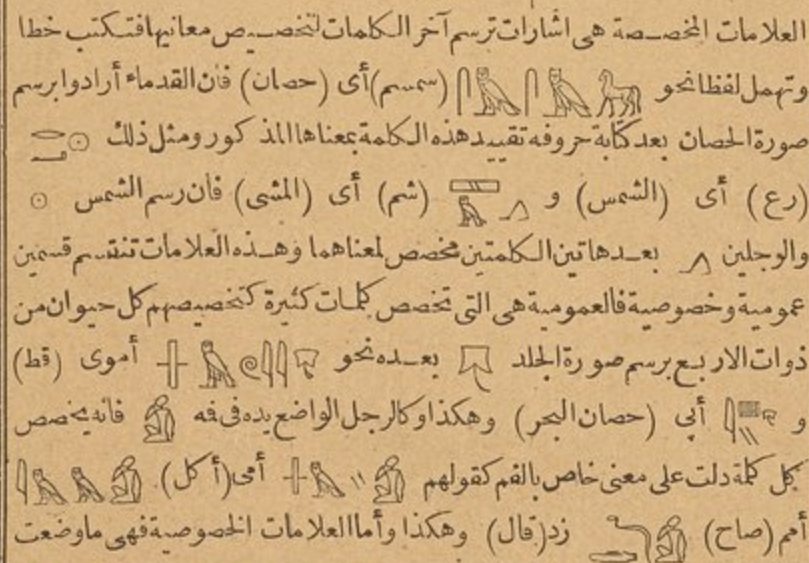 العلامات المخصصة هى اشارات ترسم آخر الكلمات لتخصيص معانيها فتكتب خطا
وتهمل لفظا نحو (سمسم) أى (حصان) فان القدماء أرادوا برسم
صورة الحصان بعد كتابة حروفه تقييد هذه الكلمة بمعناها المذكور ومثل ذلك
(رع) أى (الشمس) و (شم) أى (المشى) فان رسم الشمس
والرجلين بعد هاتين الكلمتين مخصص لمعناهما وهذه العلامات تنقسم قسمين
عمومية وخصوصية فالعمومية هى التى تخصص كلمات كثيرة كتخصيصهم كل حيوان من
ذوات الاربع برسم صورة الجلد بعده نحو أموى (قط)
و أبي (حصان البحر) وهكذا وكالرجل الواضع يده فى فه فانه يخصص
كل كلمة دلت على معنى خاص بالفم كقولهم أمى (أكل).
أمم (صاح) زد (قال) وهكذا وأما العلامات الخصوصية فهى ماوضعت